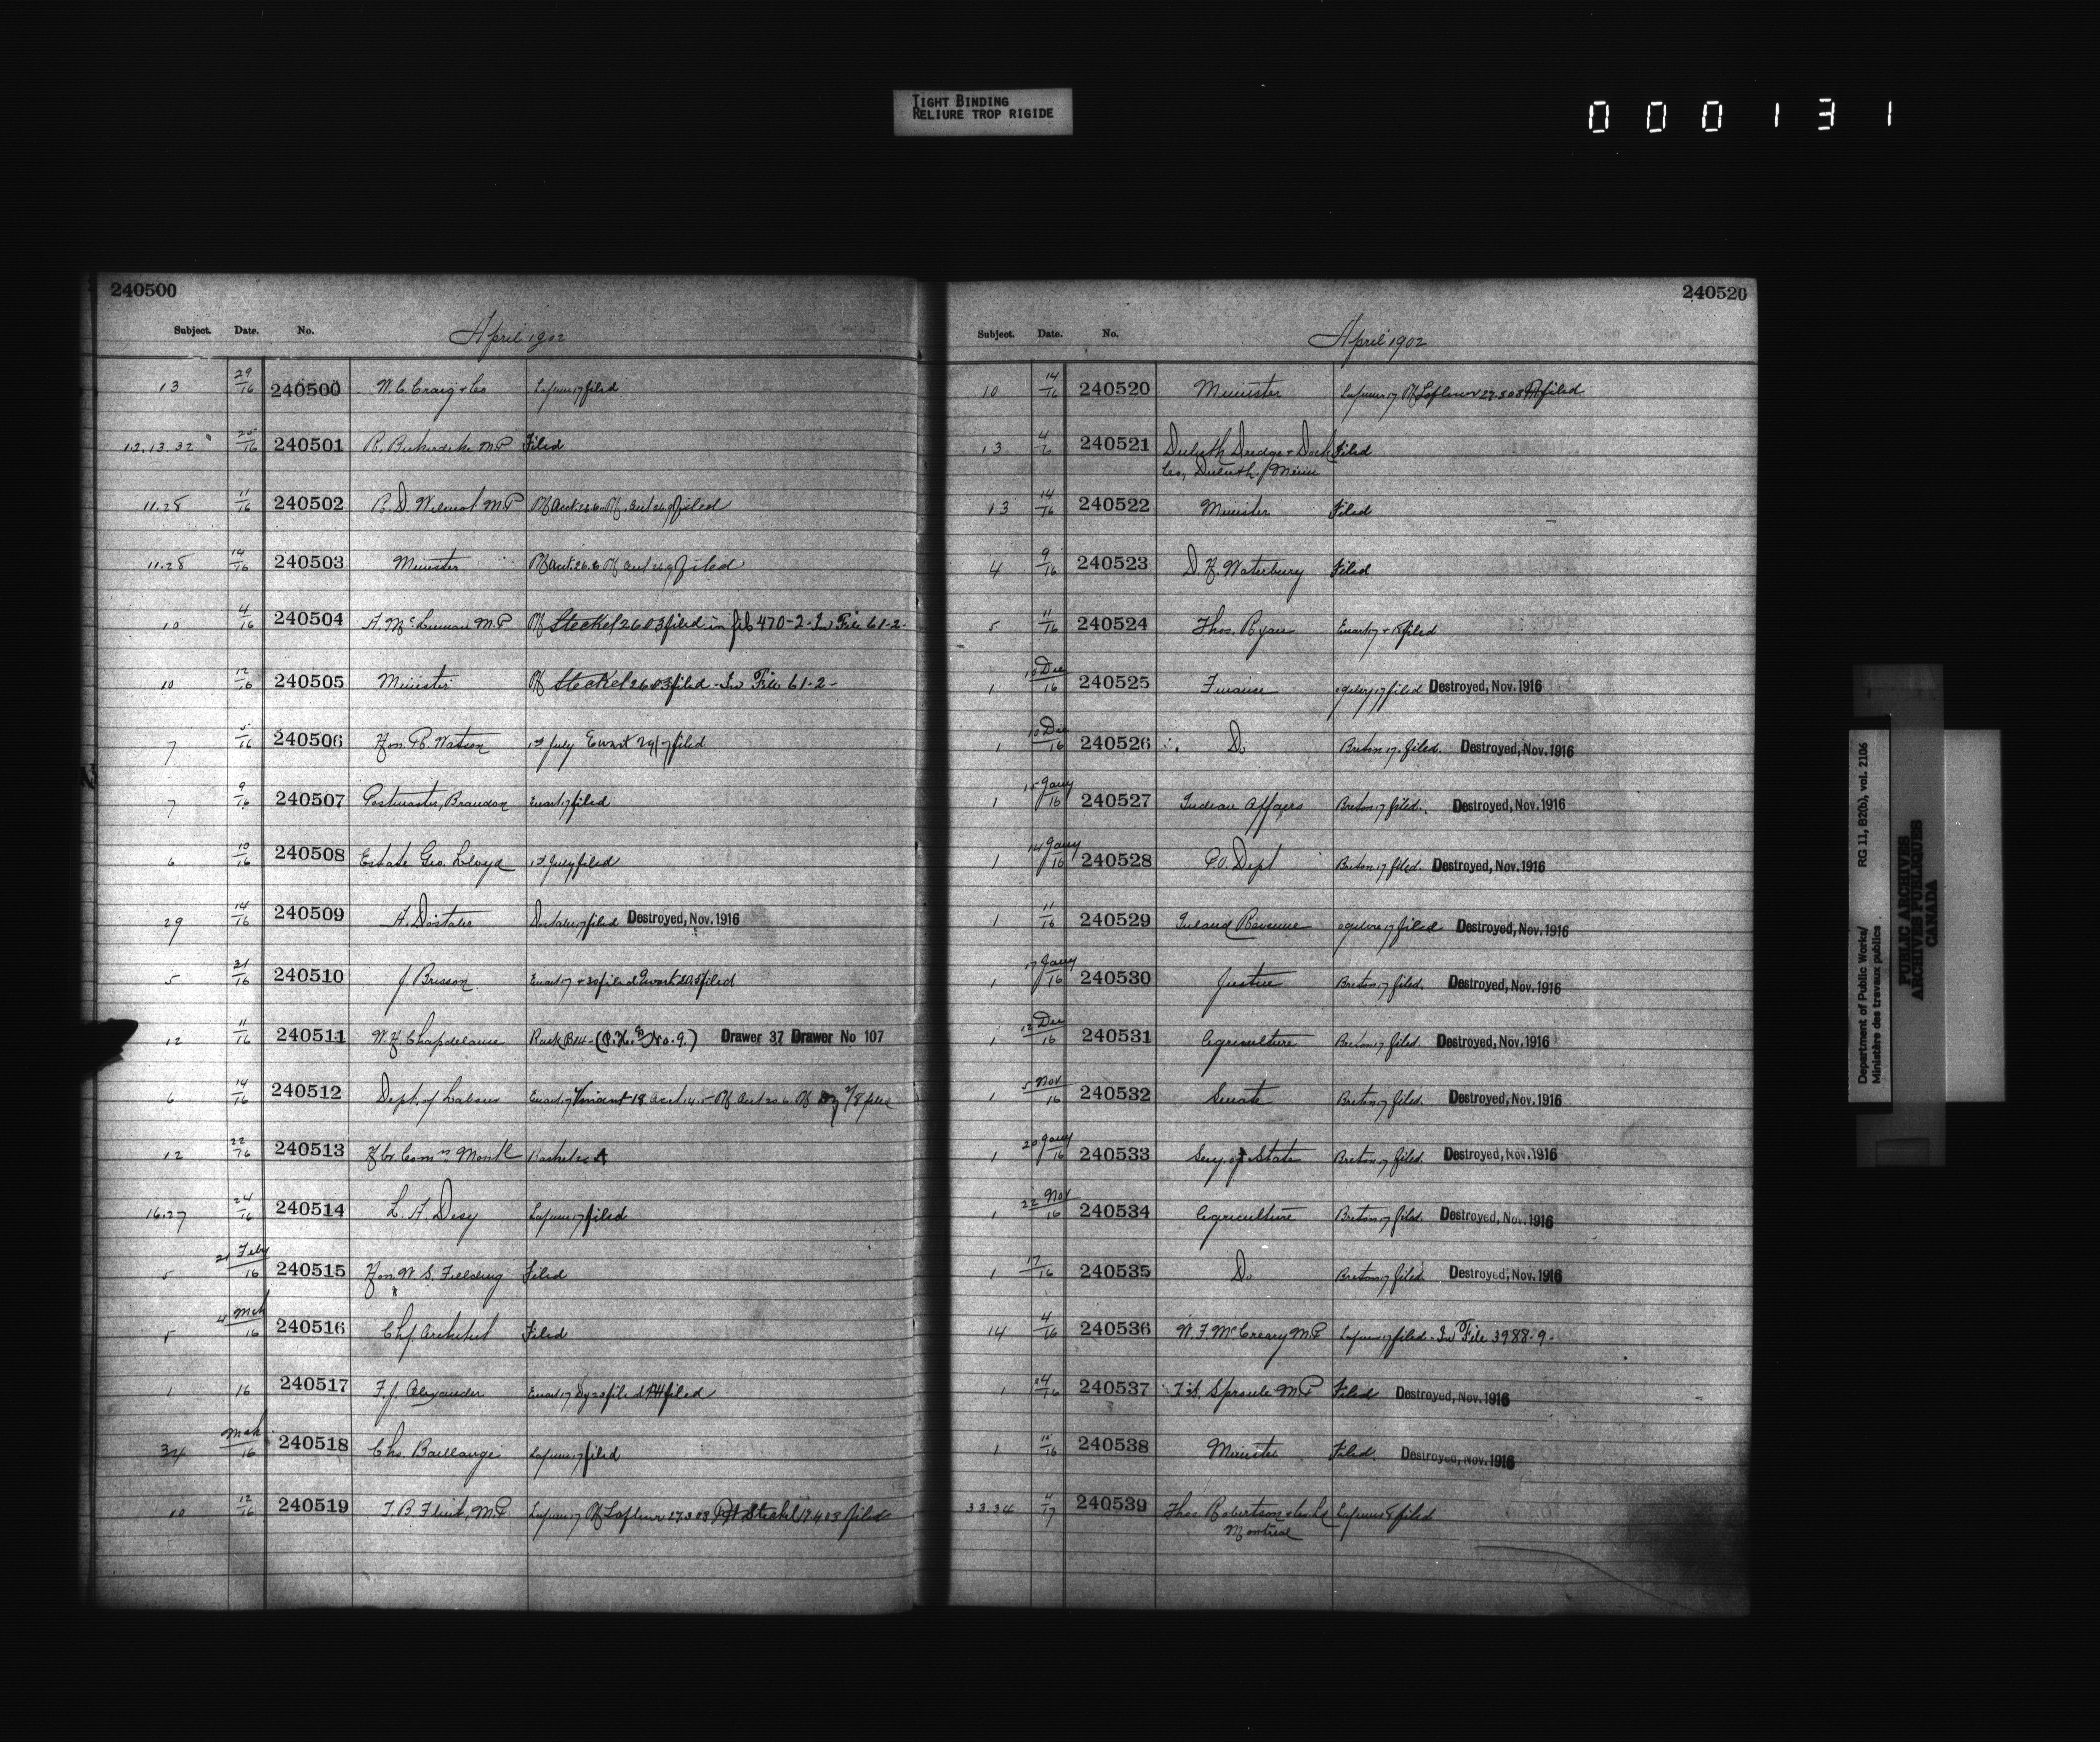 TIGHT BINDING
RELIURE TROP RIGIDE
000131
240500
Subject. Date. No. April 1902
13 29/16 240500 W. C. Craig & Co filed
12.13.32 25/16 240501 R. Bickerdike M.P Filed
11.28 11/16 240502 R. D. Wilmot M.P filed
11.28 14/16 240503 Minister filed
10 4/16 240504 A. McLennan M.P Steckel 2603 filed in file 470-2- In File 61-2-
10 12/16 240505 Minister Steckel 2603 filed - In File 61-2-
7 5/16 240506 Hon. R. Watson 1st July Ewart 29/7 filed
7 9/16 240507 Postmaster, Brandon Ewart 17 filed
6 10/16 240508 Estate Geo. Lloyd 1st July filed
29 14/16 240509 A. Dostaler Dostaler 17 filed Destroyed, Nov. 1916
5 21/16 240510 J. Brisson Ewart 17 + 30 filed Ewart filed
12 11/16 240511 W. H. Chapdelaine Drawer 37 Drawer No 107
6 14/16 240512 Dept. of Labour Ewart 17
12 22/16 240513 Hbr. Comrs Montl
16.27 24/16 240514 L. A. Desy filed
5 21 Feby/16 240515 Hon. W. S. Fielding Filed
5 4 Mch/16 240516 Chf. Architect Filed
1 16 240517 F. J. Alexander Ewart 17 filed
34 Mch/16 240518 Chs. Baillairgé filed
10 12/16 240519 T. B. Flint, M.P Lafleur Steckel filed
240520
Subject. Date. No. April 1902
10 14/16 240520 Minister Lafleur filed
13 4/16 240521 Duluth Dredge & Dock Filed
Co., Duluth, Minn
13 14/16 240522 Minister Filed
4 9/16 240523 D. H. Waterbury Filed
5 11/16 240524 Thos. Ryan Ewart 17 filed
1 13 Dec/16 240525 Finance filed Destroyed, Nov. 1916
1 10 Dec/16 240526 Do Breton 17 filed. Destroyed, Nov. 1916
1 15 Jany/16 240527 Indian Affairs Breton 17 filed. Destroyed, Nov. 1916
1 14 Jany/16 240528 P.O. Dept Breton 17 filed. Destroyed, Nov. 1916
1 11/16 240529 Inland Revenue filed Destroyed, Nov. 1916
1 17 Jany/16 240530 Justice Breton 17 filed. Destroyed, Nov. 1916
1 12 Dec/16 240531 Agriculture Breton 17 filed. Destroyed, Nov. 1916
1 5 Nov/16 240532 Senate Breton 17 filed. Destroyed, Nov. 1916
1 20 Jany/16 240533 Secy. of State Breton 17 filed. Destroyed, Nov. 1916
1 22 Nov/16 240534 Agriculture Breton 17 filed. Destroyed, Nov. 1916
1 17/16 240535 Do Breton 17 filed. Destroyed, Nov. 1916
14 4/16 240536 W. F. McCreary M.P filed - In File 3988-9-
1 240537 T. S. Sproule M.P Filed Destroyed, Nov. 1916
1 240538 Minister Filed. Destroyed, Nov. 1916
33.34 4/17 240539 Thos. Robertson & Co Ld filed
Montreal
Department of Public Works/ RG 11, B2(b), vol. 2106
Ministère des travaux publics
PUBLIC ARCHIVES
ARCHIVES PUBLIQUES
CANADA